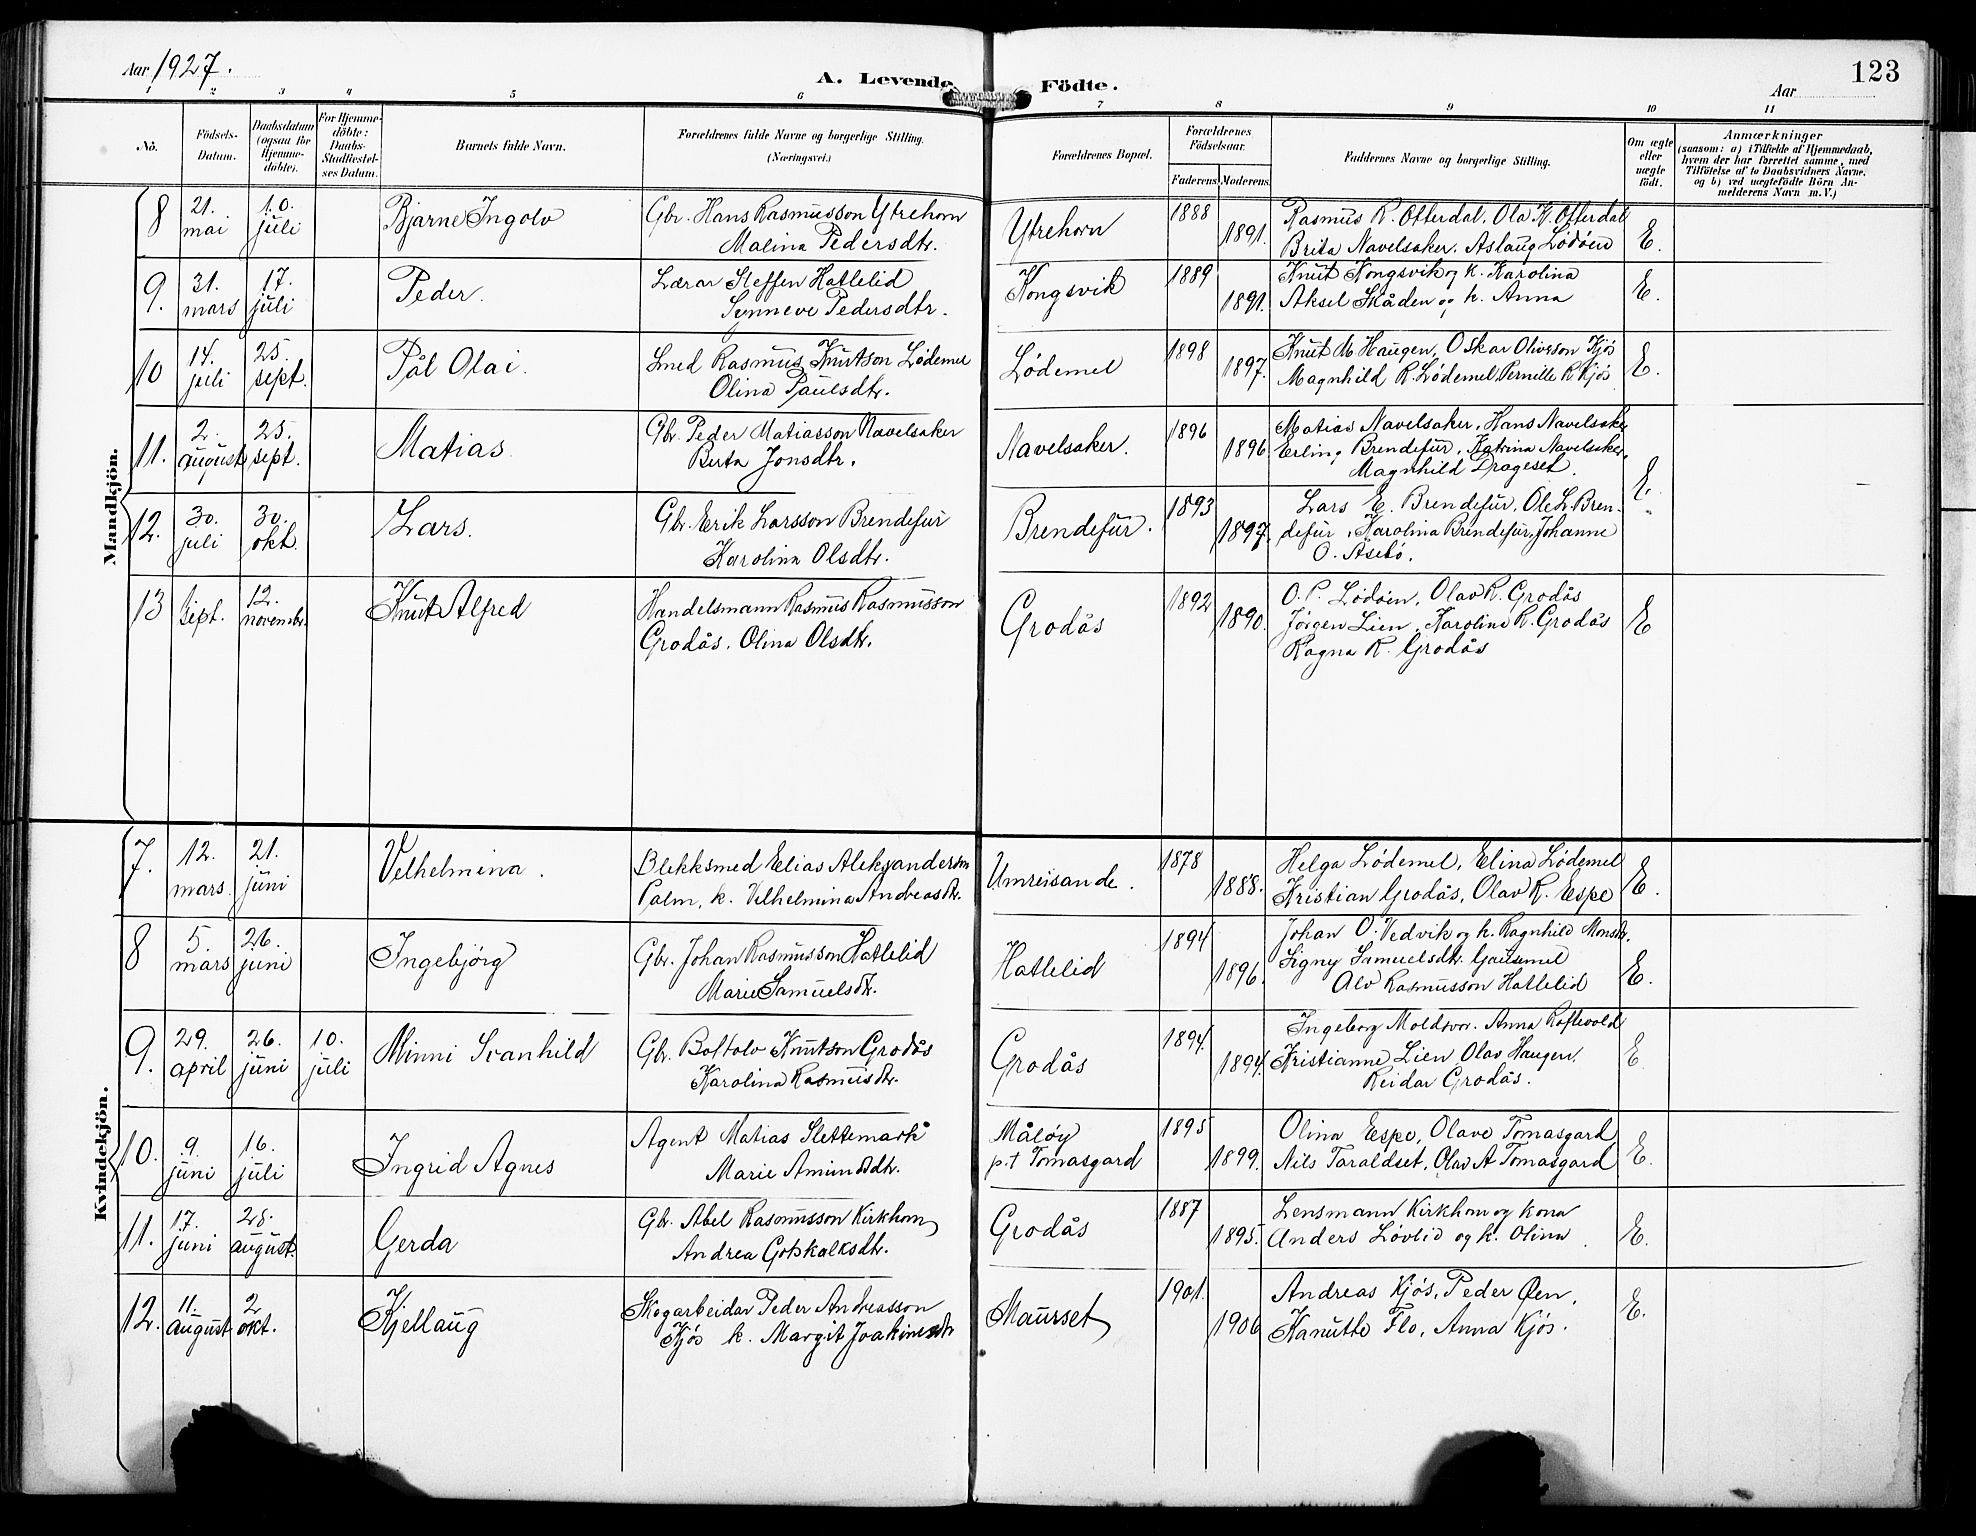 Aar 1927.
A. Levende Födte.
123
Aar
1 2 3 4 5 6 7 8 9 10 11
No.
Födsels-Datum.
Daabsdatum (ogsaa for Hjemme-döbte).
For Hjemme-döbte: Daabs-Stadfæstel-ses Datum.
Barnets fulde Navn.
Forældrenes fulde Navne og borgerlige Stilling. (Næringsvei.)
Forældrenes Bopæl.
Forældrenes Födselsaar.
Faderens. Moderens.
Faddernes Navne og borgerlige Stilling.
Om ægte eller uægte födt.
Anmærkninger
(saasom: a) i Tilfælde af Hjemmedaab,
hvem der har forrettet samme, med
Tilföielse af to Daabsvidners Navne,
og b) ved uægtefödte Börn An-
melderens Navn m. V.)
Mandkjön.
8 21. mai 10. juli Bjarne Ingolv Gbr. Hans Rasmusson Ytrehorn
Malina Pedersdtr. Ytrehorn 1888 1891. Rasmus R. Otterdal, Ola K. Otterdal
Brita Navelsaker. Aslaug Lödöen E.
9. 31. mars 17. juli Peder. Lærar Steffen Hatlelid
Synneve Pedersdtr. Kongsvik 1889 1891. Knut Kongsvik og k. Karolina
Aksel Skåden og k. Anna E.
10 14. juli 25. sept. Pål Olai. Smed Rasmus Knutson Lødemel
Olina Paulsdtr. Lødemel 1898 1897. Knut M Haugen, Oskar Oliverson Kjøs
Magnhild R. Lødemel, Pernille R Kjøs E.
11. 2. august 25. sept. Matias Gbr. Peder Matiasson Navelsaker
Berta Jonsdtr. Navelsaker. 1896 1896 Matias Navelsaker, Hans Navelsaker
Erling Brendefur, Katrina Navelsaker,
Magnhild Drageset. E.
12. 30. juli 30. okt. Lars. Gbr. Erik Larsson Brendefur
Karolina Olsdtr. Brendefur. 1893 1897. Lars E. Brendefur, Ole L. Bren-
defur, Karolina Brendefur, Johanne
O. Åsebö. "
13 1. sept. 12. novembr. Knut Alfred Handelsmann Rasmus Rasmusson
Grodås. Olina Olsdtr. Grodås 1892 1890. O. P. Lödöen, Olav R. Grodås
Jørgen Lien, Karoline R. Grodås
Ragna R. Grodås E
Kvindekjön.
7. 12. mars. 21. juni Velhelmina. Blekksmed Elias Aleksanderson
Palm, k. Vilhelmina Andreasdtr. Umreisande. 1878 1888. Helga Lødemel, Elina Lødemel
Kristian Grodås, Olav R. Espe E.
8 5. mars 26. juni Ingebjörg Gbr. Johan Rasmusson Hatlelid
Marie Samuelsdtr. Hatlelid 1894 1896. Johan O. Vedvik og k. Ragnhild Monsdtr.
Signy Samuelsdtr. Gausemel
Alv Rasmusson Hatlelid E.
9. 29. april 26. juni 10. juli Minni Svanhild Gbr. Boltolv Knutson Grodås
Karolina Rasmusdtr. Grodås 1894. 1894. Ingeborg Moldsvor. Anna Roftevold
Kristianne Lien Olav Haugen.
Reidar Grodås. E
10. 9. juni 16. juli Ingrid Agnes Agent Matias Slettemark
Marie Amundsdtr. Måløy
p.t Tomasgard 1895 1899. Olina Espe, Olave Tomasgard
Nils Taraldset, Olav A Tomasgard E.
11. 17. juni 28. august Gerda Gbr. Abel Rasmusson Kirkhorn
Andrea Gotskalksdtr. Grodås 1887 1895. Lensmann Kirkhorn og kona
Anders Løvlid og k. Olina. E.
12. 11. august 2 okt. Kjellaug Skogarbeidar Peder Andreasson
Kjøs k. Margit Joakimsdtr Maurset 1901. 1906 Andreas Kjøs, Peder Øen,
Kanutte Flo, Anna Kjøs. E.